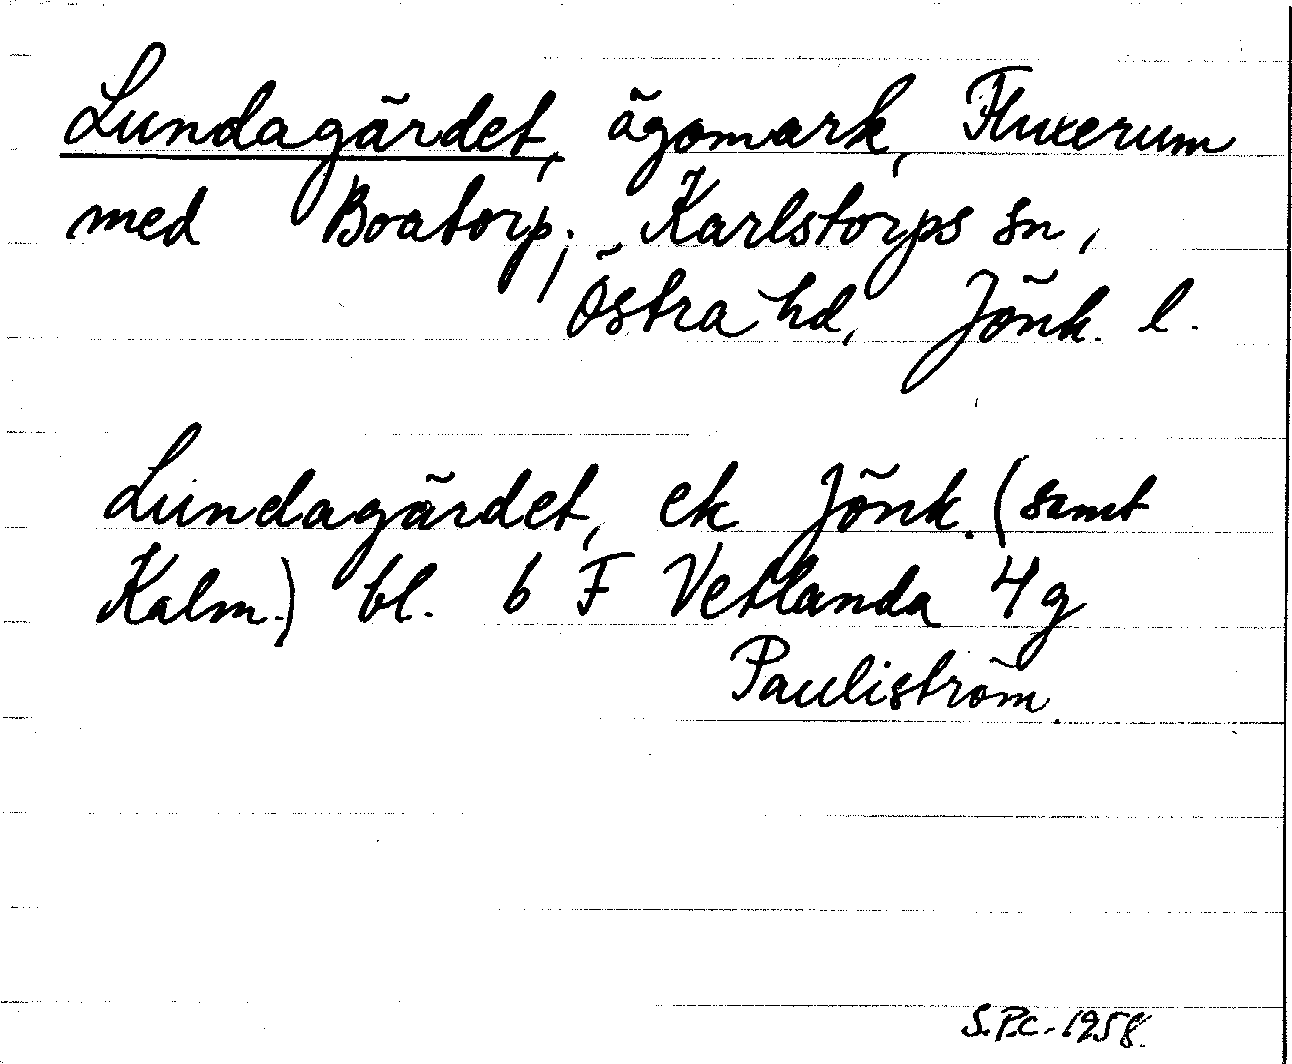 Lundagärdet, ägomark, Fluxerum
med Boatorp, Karlstorps sn,
Östra hd, Jönk. l.
Lundagärdet, ek Jönk. (samt
Kalm.) bl. 6 F Vetlanda 4g
Pauliström.
S.P.C. 1958.